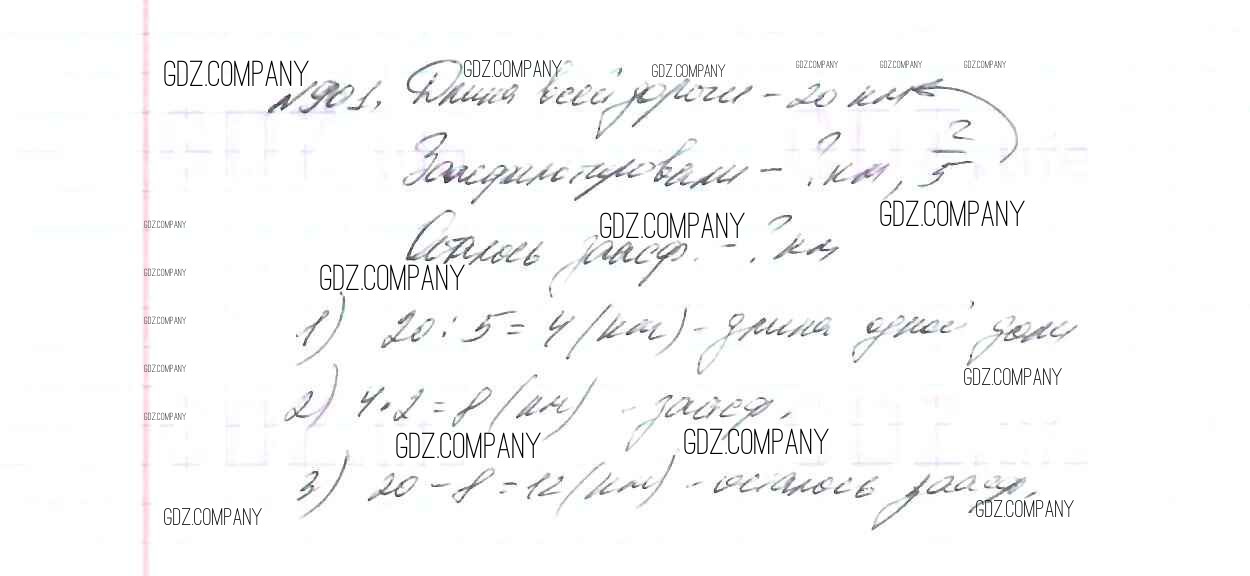 GDZ.COMPANY GDZ.COMPANY GDZ.COMPANY GDZ.COMPANY GDZ.COMPANY GDZ.COMPANY
№901. Длина всей дороги - 20 км
Заасфальтировали - ? км, 2/5
GDZ.COMPANY GDZ.COMPANY GDZ.COMPANY
Осталось заасф. - ? км
GDZ.COMPANY GDZ.COMPANY
1) 20 : 5 = 4 (км) - длина одной доли
GDZ.COMPANY
GDZ.COMPANY GDZ.COMPANY
2) 4 · 2 = 8 (км) - заасф.
GDZ.COMPANY
GDZ.COMPANY GDZ.COMPANY
3) 20 - 8 = 12 (км) - осталось заасф.
GDZ.COMPANY GDZ.COMPANY